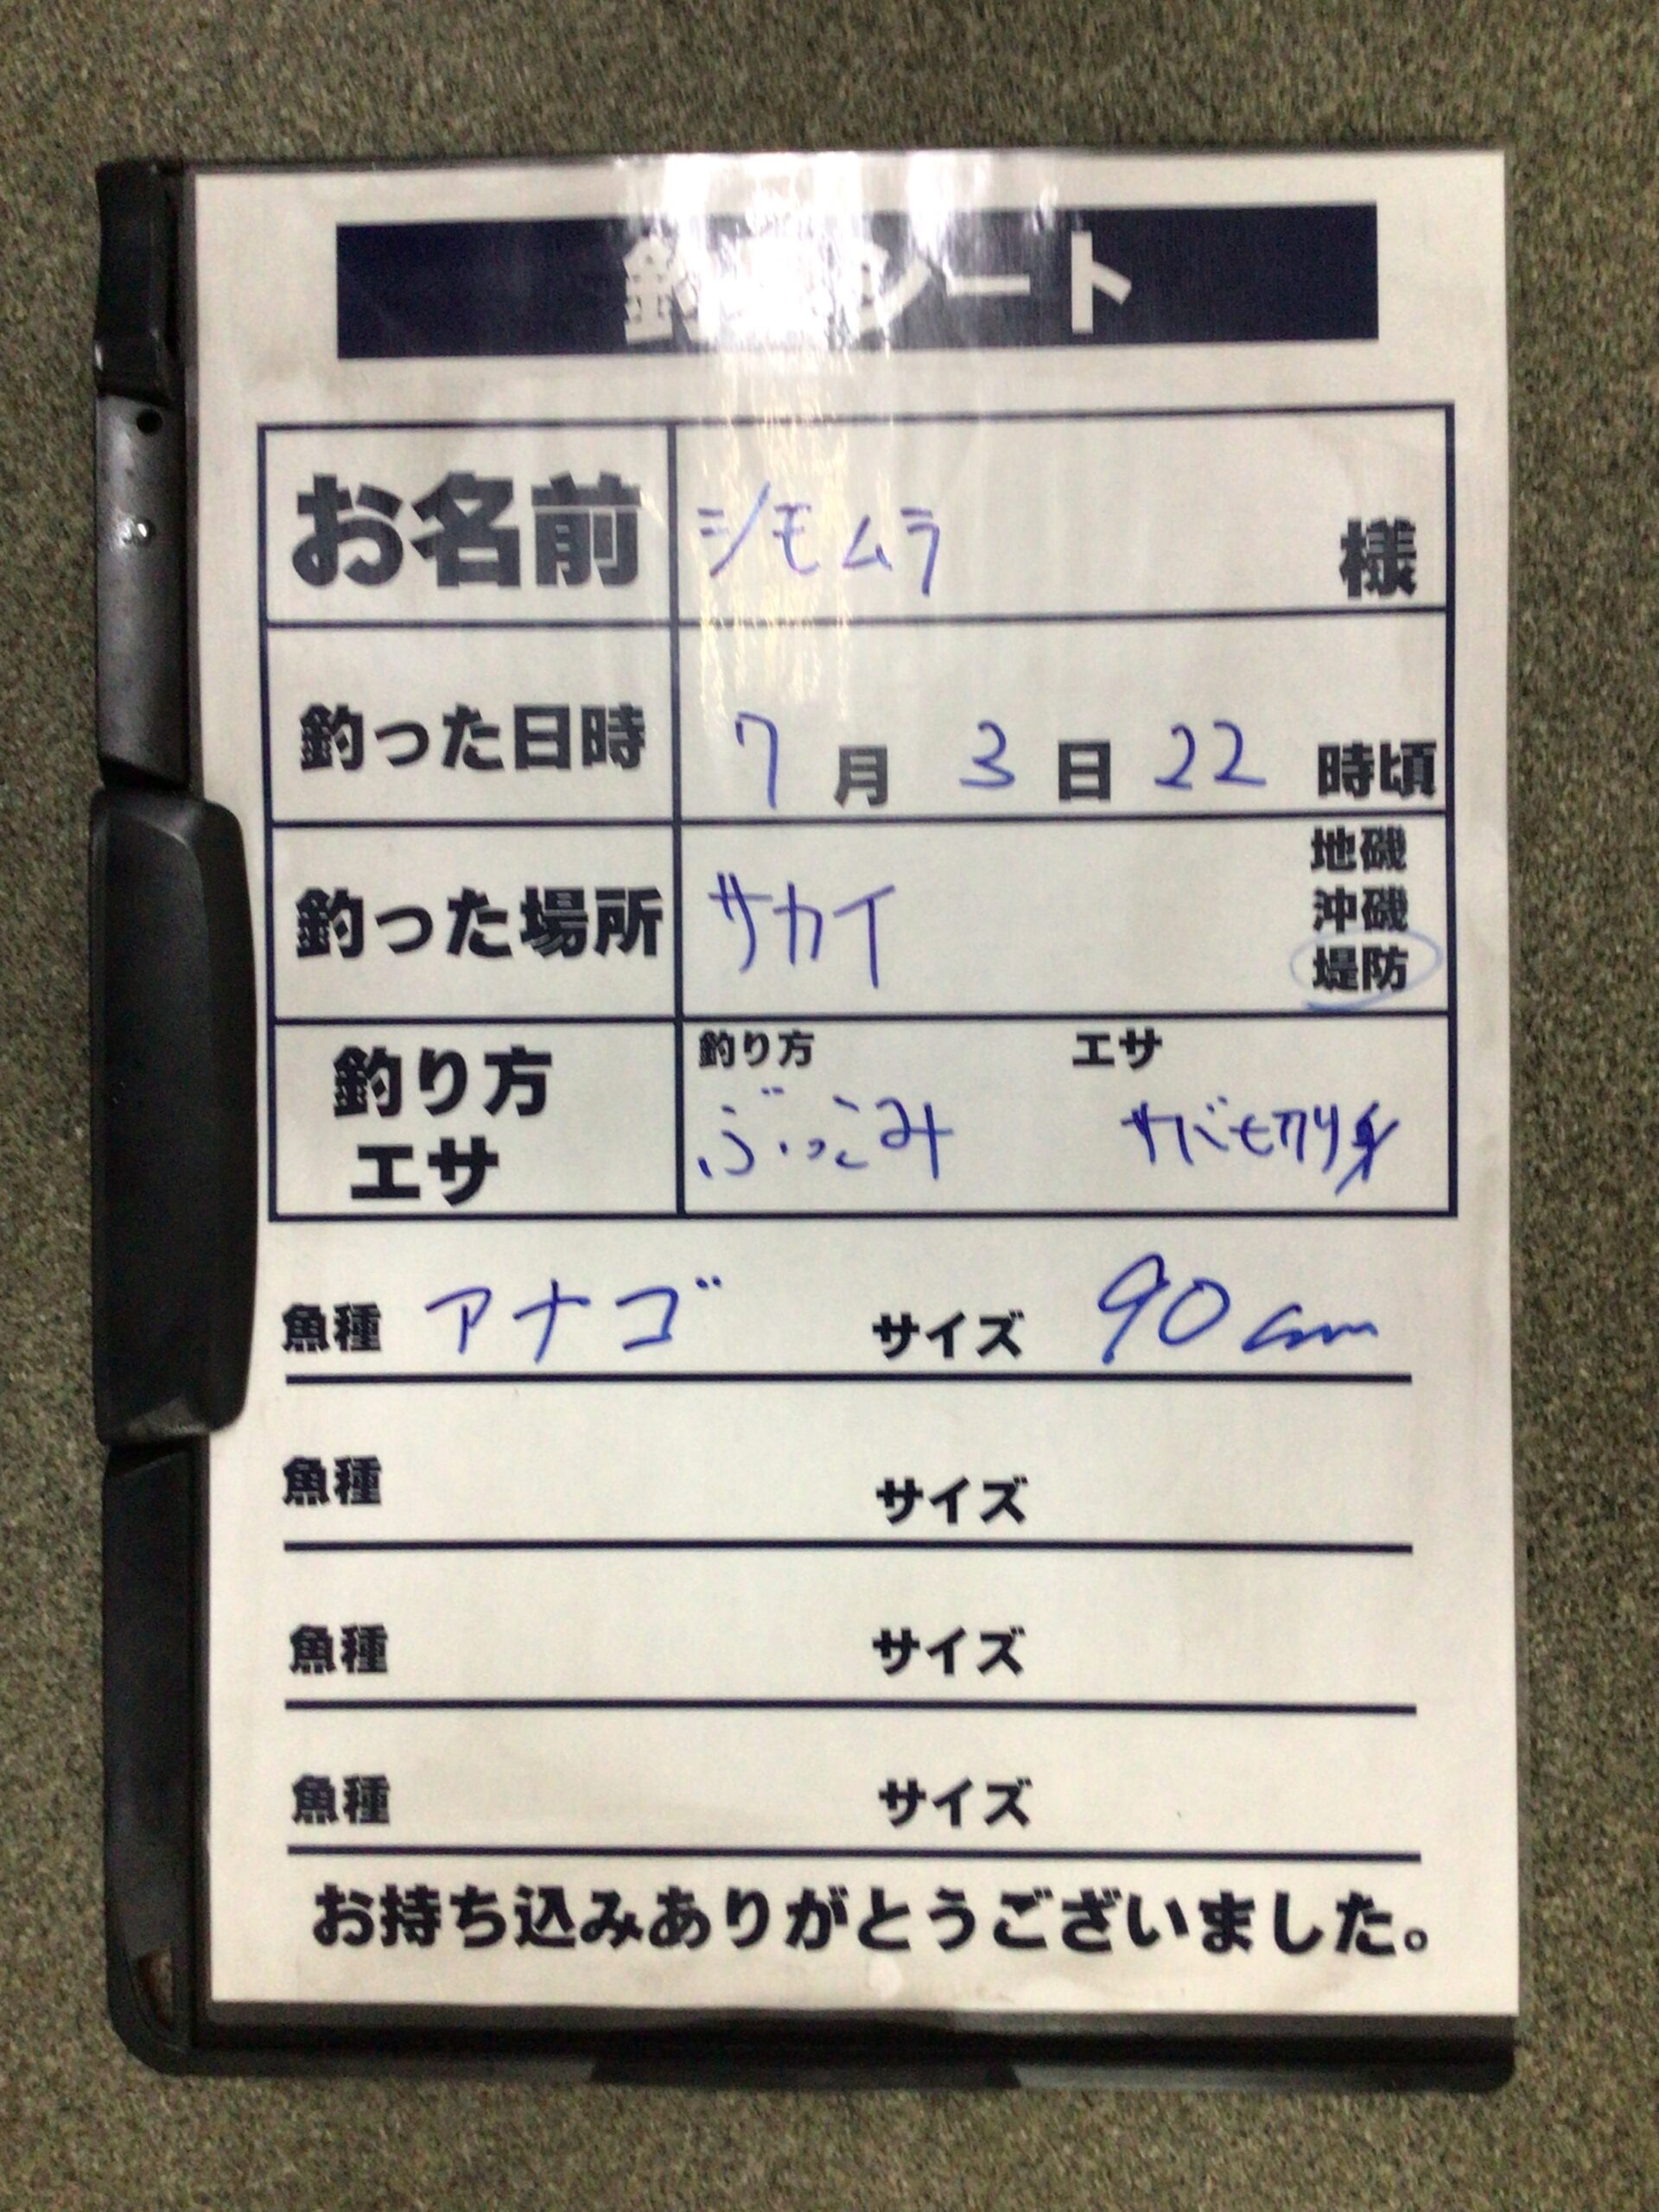 シート
お名前 シモムラ 様
釣った日時 7月3日22時頃
釣った場所 サカイ 地磯
沖磯
堤防
釣り方 エサ 釣り方 エサ
ぶっこみ サバ切り身
魚種 アナゴ サイズ 90cm
魚種 サイズ
魚種 サイズ
魚種 サイズ
お持ち込みありがとうございました。